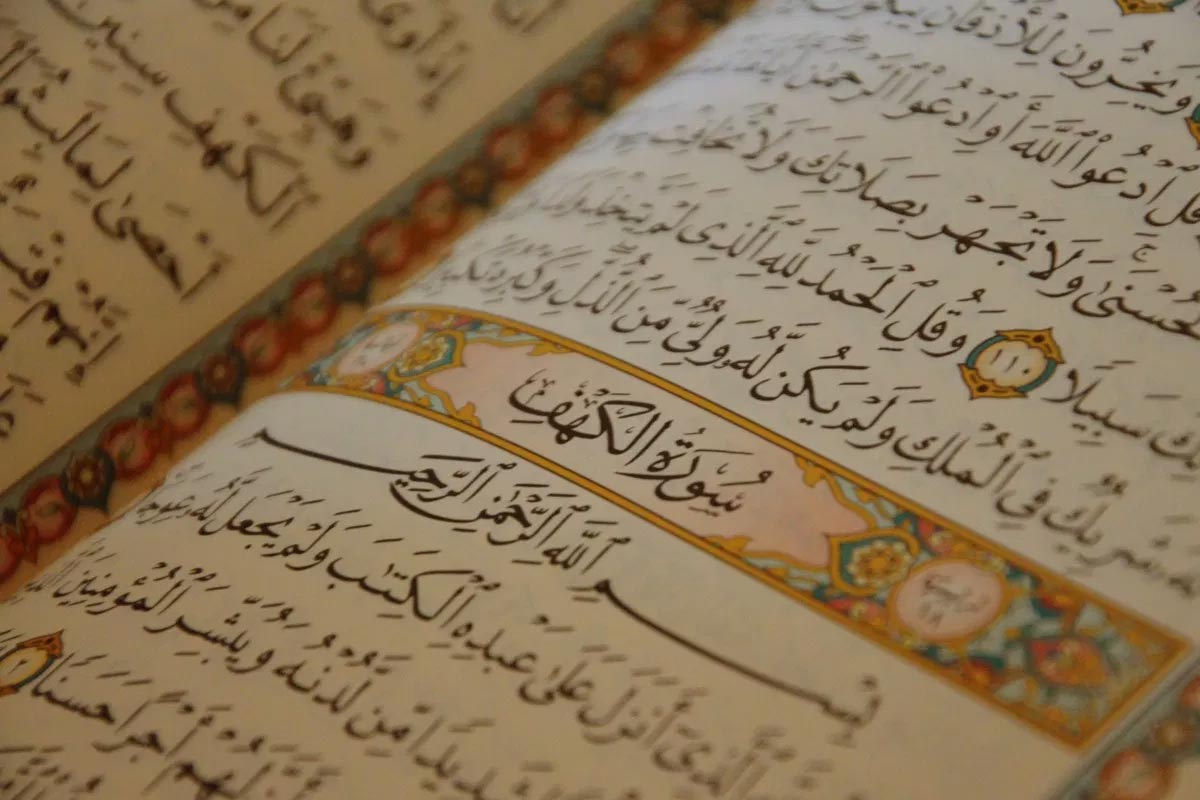 وَيَخِرُّونَ لِلْأَذْقَانِ
قُلِ ٱدْعُوا۟ ٱللَّهَ أَوِ ٱدْعُوا۟ ٱلرَّحْمَٰنَ
ٱلْحُسْنَىٰ وَلَا تَجْهَرْ بِصَلَاتِكَ وَلَا تُخَافِتْ
سَبِيلًا ١١٠ وَقُلِ ٱلْحَمْدُ لِلَّهِ ٱلَّذِى لَمْ يَتَّخِذْ وَلَدًا
شَرِيكٌ فِى ٱلْمُلْكِ وَلَمْ يَكُن لَّهُۥ وَلِىٌّ مِّنَ ٱلذُّلِّ وَكَبِّرْهُ تَكْبِيرًا
سُورَةُ الْكَهْفِ
بِسْمِ ٱللَّهِ ٱلرَّحْمَٰنِ ٱلرَّحِيمِ
ٱلَّذِىٓ أَنزَلَ عَلَىٰ عَبْدِهِ ٱلْكِتَٰبَ وَلَمْ يَجْعَل لَّهُۥ عِوَجَا
شَدِيدًا مِّن لَّدُنْهُ وَيُبَشِّرَ ٱلْمُؤْمِنِينَ
لَهُمْ أَجْرًا حَسَنًا ٢
إِذْ أَوَى
وَهَيِّئْ لَنَا مِنْ
ٱلْكَهْفِ سِنِينَ
أَحْصَىٰ لِمَا لَبِثُوٓا۟